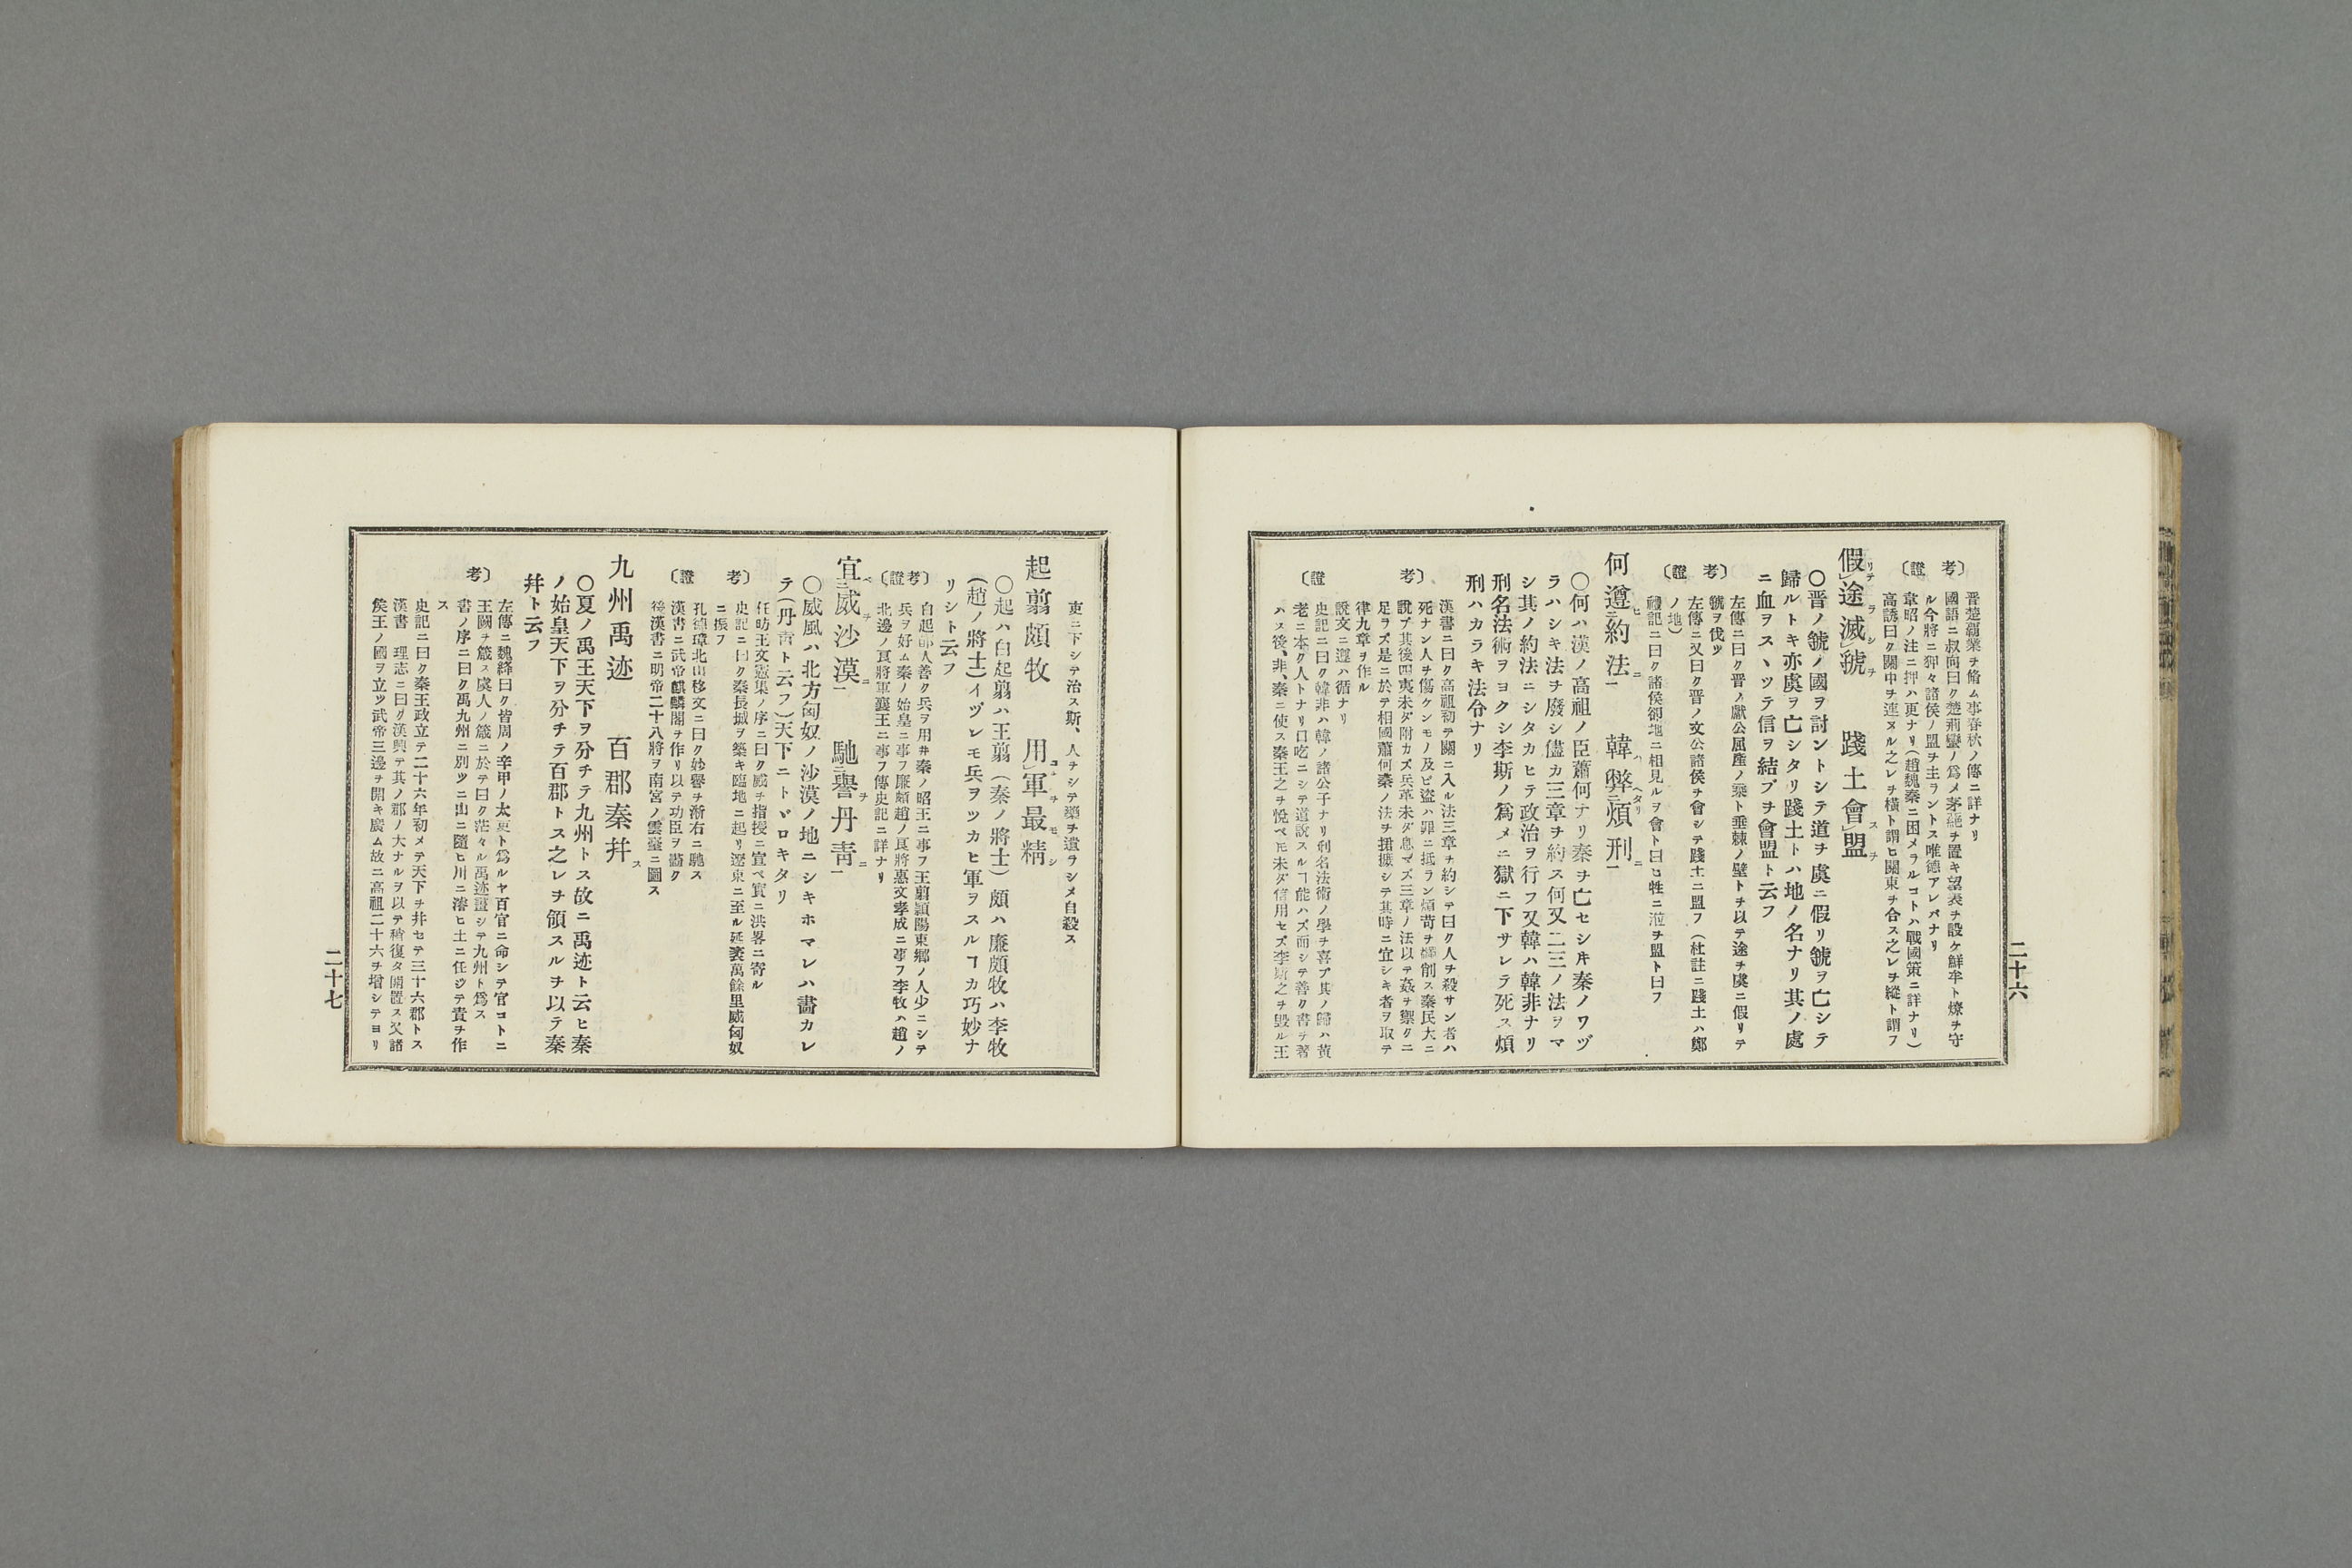 晋楚覇業ヲ脩ム事春秋ノ傳ニ詳ナリ
〔考證〕
國語ニ叔向曰ク楚荊蠻ノ爲メ茅蕝ヲ置キ望表ヲ設ケ鮮牟ト燎ヲ守
ル今將ニ狎々諸侯ノ盟ヲ主ラントス唯德アレバナリ
韋昭ノ注ニ狎ハ更ナリ(趙魏秦ニ困メラルコトハ戰國策ニ詳ナリ)
高誘曰ク關中ヲ連ヌル之レヲ橫ト謂ヒ關東ヲ合ス之レヲ縱ト謂フ
假途滅虢 踐土會盟
〇晋ノ虢ノ國ヲ討ントシテ道ヲ虞ニ假リ虢ヲ亡シテ
歸ルトキ亦虞ヲ亡シタリ踐土トハ地ノ名ナリ其ノ處
ニ血ヲスヽツテ信ヲ結ブヲ會盟ト云フ
〔考證〕
左傳ニ曰ク晋ノ獻公屈産ノ乘ト垂棘ノ璧トヲ以テ途ヲ虞ニ假リテ
虢ヲ伐ツ
左傳ニ又曰ク晋ノ文公諸侯ヲ會シテ踐土ニ盟フ(杜註ニ踐土ハ鄭
ノ地)
禮記ニ曰ク諸侯郤地ニ相見ルヲ會ト曰ヒ牲ニ涖ヲ盟ト曰フ
何遵約法 韓弊煩刑
〇何ハ漢ノ高祖ノ臣蕭何ナリ秦ヲ亡セシキ秦ノワヅ
ラハシキ法ヲ廢シ儘カ三章ヲ約ス何又二三ノ法ヲマ
シ其ノ約法ニシタカヒテ政治ヲ行フ又韓ハ韓非ナリ
刑名法術ヲヨクシ李斯ノ爲メニ獄ニ下サレラ死ス煩
刑ハカラキ法令ナリ
〔考證〕
漢書ニ曰ク高祖初テ關ニ入ル法三章ヲ約シテ曰ク人ヲ殺サン者ハ
死ナン人ヲ傷ケンモノ及ビ盗ハ罪ニ抵ラン煩苛ヲ蠲削ス秦民大ニ
說ブ其後四夷未ダ附カズ兵革未ダ息マズ三章ノ法以テ姦ヲ禦クニ
足ラズ是ニ於テ相國蕭何秦ノ法ヲ捃摭シテ其時ニ宜シキ者ヲ取テ
律九章ヲ作ル
說文ニ遵ハ循ナリ
史記ニ曰ク韓非ハ韓ノ諸公子ナリ刑名法術ノ學ヲ喜ブ其ノ歸ハ黃
老ニ本ク人トナリ口吃ニシテ道說スルヿ能ハズ而シテ善ク書ヲ著
ハス後、非、秦ニ使ス秦王之ヲ悅ベ𪜈未ダ信用セズ李斯之ヲ毀ル王
二十六
吏ニ下シテ治ス斯、人ヲシテ藥ヲ遺ラシメ自殺ス
起翦頗牧 用軍最精
〇起ハ白起翦ハ王翦(秦ノ將士)頗ハ廉頗牧ハ李牧
(趙ノ將士)イヅレモ兵ヲツカヒ軍ヲスルヿカ巧妙ナ
リシト云フ
〔考證〕
白起郿人善ク兵ヲ用井秦ノ昭王ニ事フ王翦頴陽東鄉ノ人少ニシテ
兵ヲ好ム秦ノ始皇ニ事フ廉頗趙ノ良將惠文孝成ニ事フ李牧ハ趙ノ
北邊ノ良將軍襄王ニ事フ傳史記ニ詳ナリ
宣威沙漠 馳譽丹靑
〇威風ハ北方匈奴ノ沙漠ノ地ニシキホマレハ畵カレ
テ(丹靑ト云フ)天下ニトヾロキタリ
〔考證〕
任昉王文憲集ノ序ニ曰ク威ヲ指授ニ宣ベ實ニ洪畧ニ寄ル
史記ニ曰ク秦長城ヲ築キ臨地ニ起リ遼東ニ至ル延袤萬餘里威匈奴
ニ振フ
孔德璋北山移文ニ曰ク妙譽ヲ浙右ニ馳ス
漢書ニ武帝麒麟閣ヲ作リ以テ功臣ヲ畵ク
後漢書ニ明帝二十八將ヲ南宮ノ雲臺ニ圖ス
九州禹迹 百郡秦幷
〇夏ノ禹王天下ヲ分チテ九州トス故ニ禹迹ト云ヒ秦
ノ始皇天下ヲ分チテ百郡トス之レヲ領スルヲ以テ秦
幷ト云フ
〔考
左傳ニ魏絳曰ク皆周ノ辛甲ノ太史ト爲ルヤ百官ニ命シテ官コトニ
王闕ヲ箴ス虞人ノ箴ニ於テ曰ク茫々ル禹迹畫シテ九州ト爲ス
書ノ序ニ曰ク禹九州ニ別ツニ出ニ隨ヒ川ニ濬ヒ土ニ任ジテ貢ヲ作
ス
史記ニ曰ク秦王政立テ二十六年初メテ天下ヲ幷セテ三十六郡トス
漢書 理志ニ曰ク漢興テ其ノ郡ノ大ナルヲ以テ稍復タ開置ス又諸
侯王ノ國ヲ立ツ武帝三邊ヲ開キ廣ム故ニ高祖二十六ヲ增シテヨリ
二十七